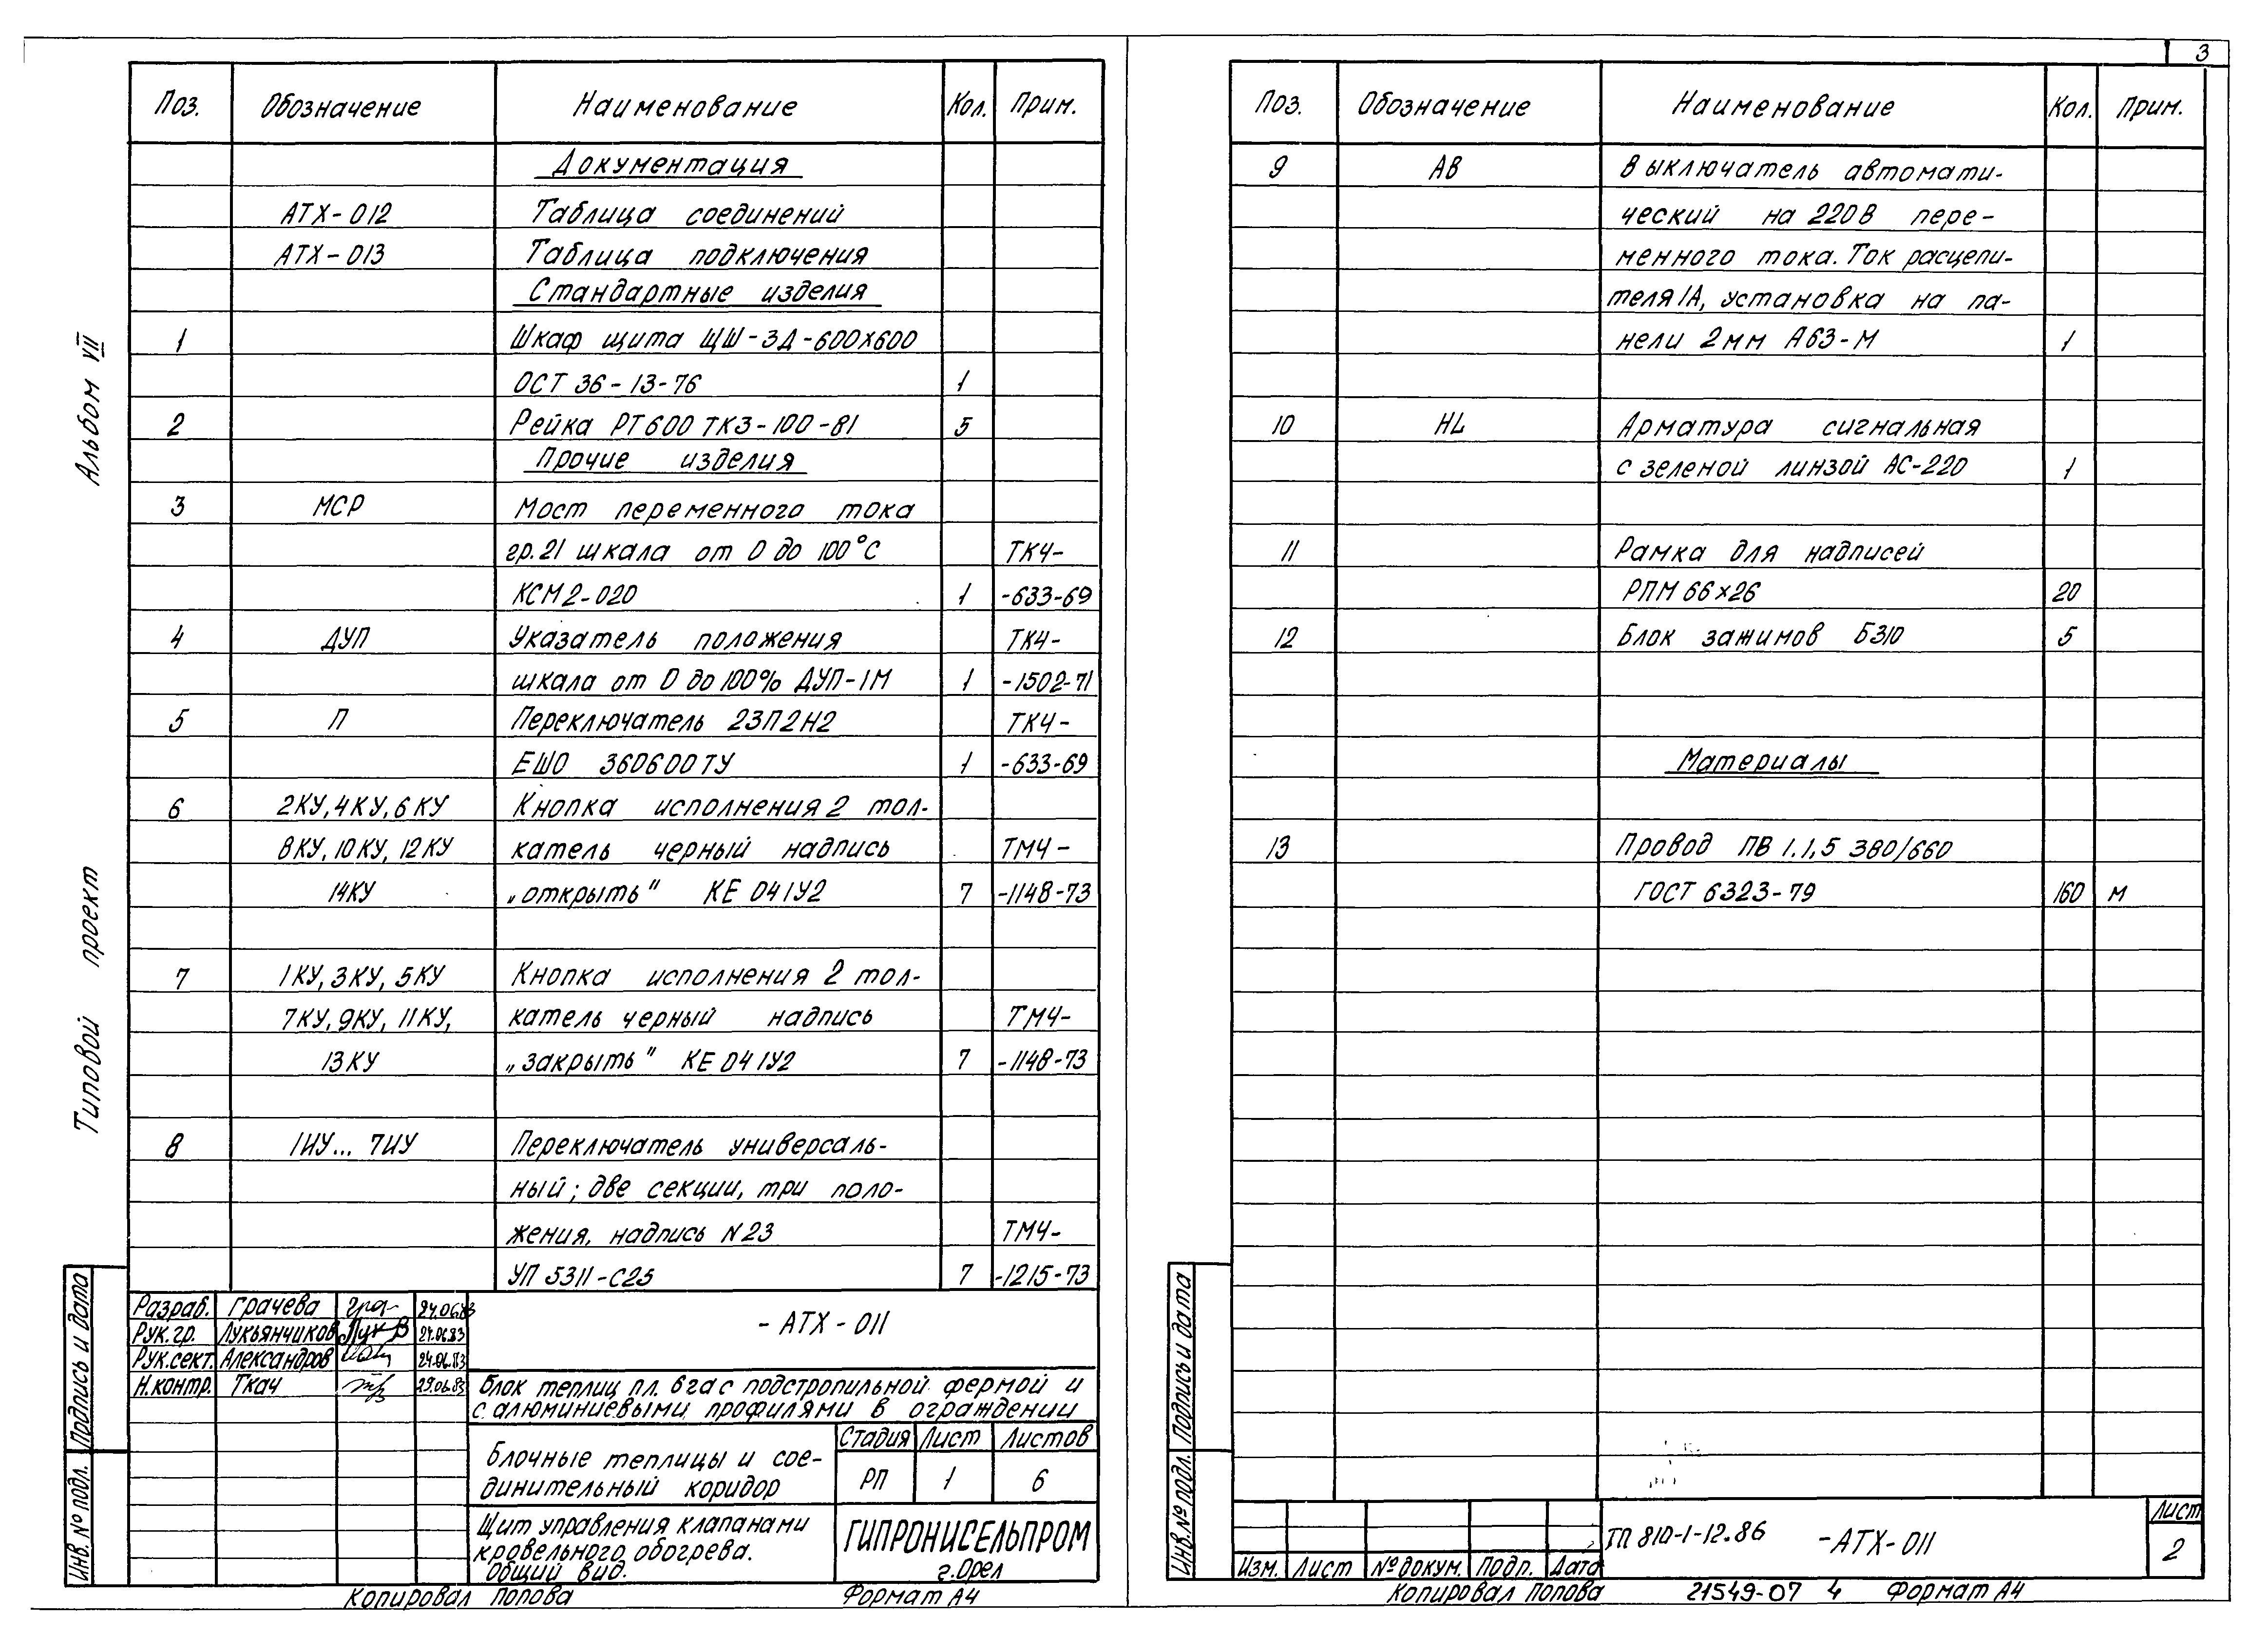 3
Альбом VII
Типовой проект
Поз. Обозначение Наименование Кол. Прим.
Документация
АТХ-012 Таблица соединений
АТХ-013 Таблица подключения
Стандартные изделия
1 Шкаф щита ЩШ-ЗД-600х600
ОСТ 36-13-76 1
2 Рейка РТ600 ТК3-100-81 5
Прочие изделия
3 МСР Мост переменного тока
гр.21 шкала от 0 до 100°С ТК4-
КСМ2-020 1 -633-69
4 ДУП Указатель положения ТК4-
шкала от 0 до 100% ДУП-1М 1 -1502-71
5 П Переключатель 2ЗП2Н2 ТК4-
ЕШО 360600ТУ 1 -633-69
6 2КУ, 4КУ, 6КУ Кнопка исполнения 2 тол-
8КУ, 10КУ, 12КУ катель черный надпись ТМ4-
14КУ „открыть" КЕ 041У2 7 -1148-73
7 1КУ, 3КУ, 5КУ Кнопка исполнения 2 тол-
7КУ, 9КУ, 11КУ, катель черный надпись ТМ4-
13КУ „закрыть" КЕ 041У2 7 -1148-73
8 1ИУ... 7ИУ Переключатель универсаль-
ный; две секции, три поло-
жения, надпись N23 ТМ4-
УП 5311-С25 7 -1215-73
Разраб. Грачева 24.06.83
Рук.гр. Лукьянчиков 24.06.83
Рук.сект. Александров 24.06.83
Н.контр. Ткач 29.06.83
-АТХ-011
Блок теплиц пл. 6га с подстропильной фермой и
с алюминиевыми профилями в ограждении
Блочные теплицы и сое-
динительный коридор
Стадия Лист Листов
РП 1 6
Щит управления клапанами
кровельного обогрева.
Общий вид.
ГИПРОНИСЕЛЬПРОМ
г.Орел
Подпись и дата
Инв. № подл.
Копировал Попова Формат А4
Поз. Обозначение Наименование Кол. Прим.
9 АВ Выключатель автомати-
ческий на 220В пере-
менного тока. Ток расцепи-
теля 1А, установка на па-
нели 2мм А63-М 1
10 HL Арматура сигнальная
с зеленой линзой АС-220 1
11 Рамка для надписей
РПМ 66х26 20
12 Блок зажимов Б310 5
Материалы
13 Провод ПВ 1.1,5 380/660
ГОСТ 6323-79 160 м
Подпись и дата
Инв. № подл.
Изм. Лист № докум. Подп. Дата
ТП 810-1-12.86 -АТХ-011
Лист
2
Копировал Попова 21549-07 4 Формат А4